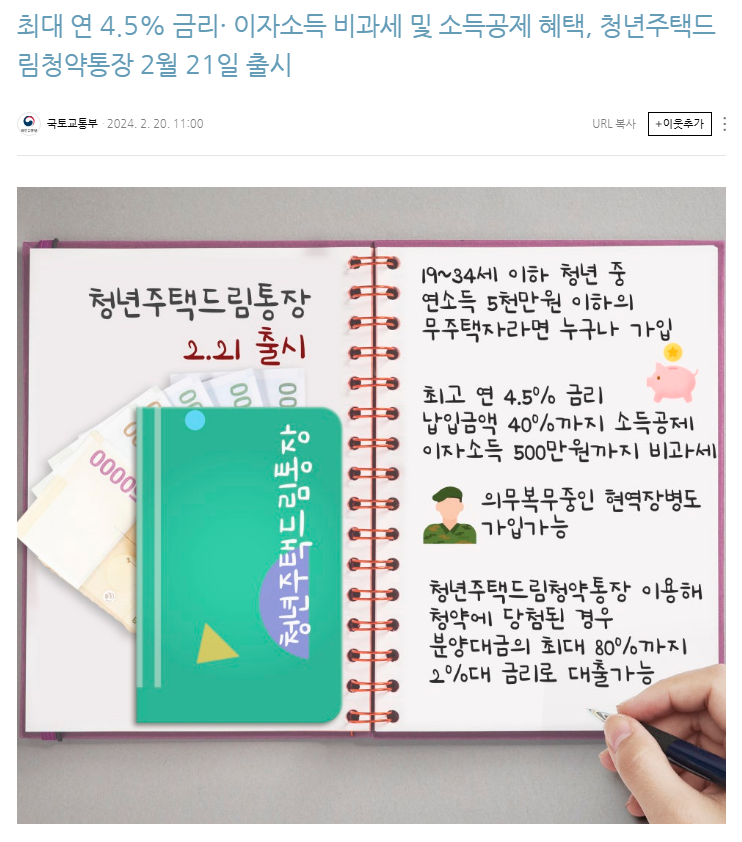 최대 연 4.5% 금리· 이자소득 비과세 및 소득공제 혜택, 청년주택드
림청약통장 2월 21일 출시
국토교통부 · 2024. 2. 20. 11:00
URL 복사
+이웃추가
청년주택드림통장
2.21 출시
청년주택드림통장
19~34세 이하 청년 중
연소득 5천만원 이하의
무주택자라면 누구나 가입
최고 연 4.5% 금리
납입금액 40%까지 소득공제
이자소득 500만원까지 비과세
의무복무중인 현역장병도
가입가능
청년주택드림청약통장 이용해
청약에 당첨된 경우
분양대금의 최대 80%까지
2%대 금리로 대출가능